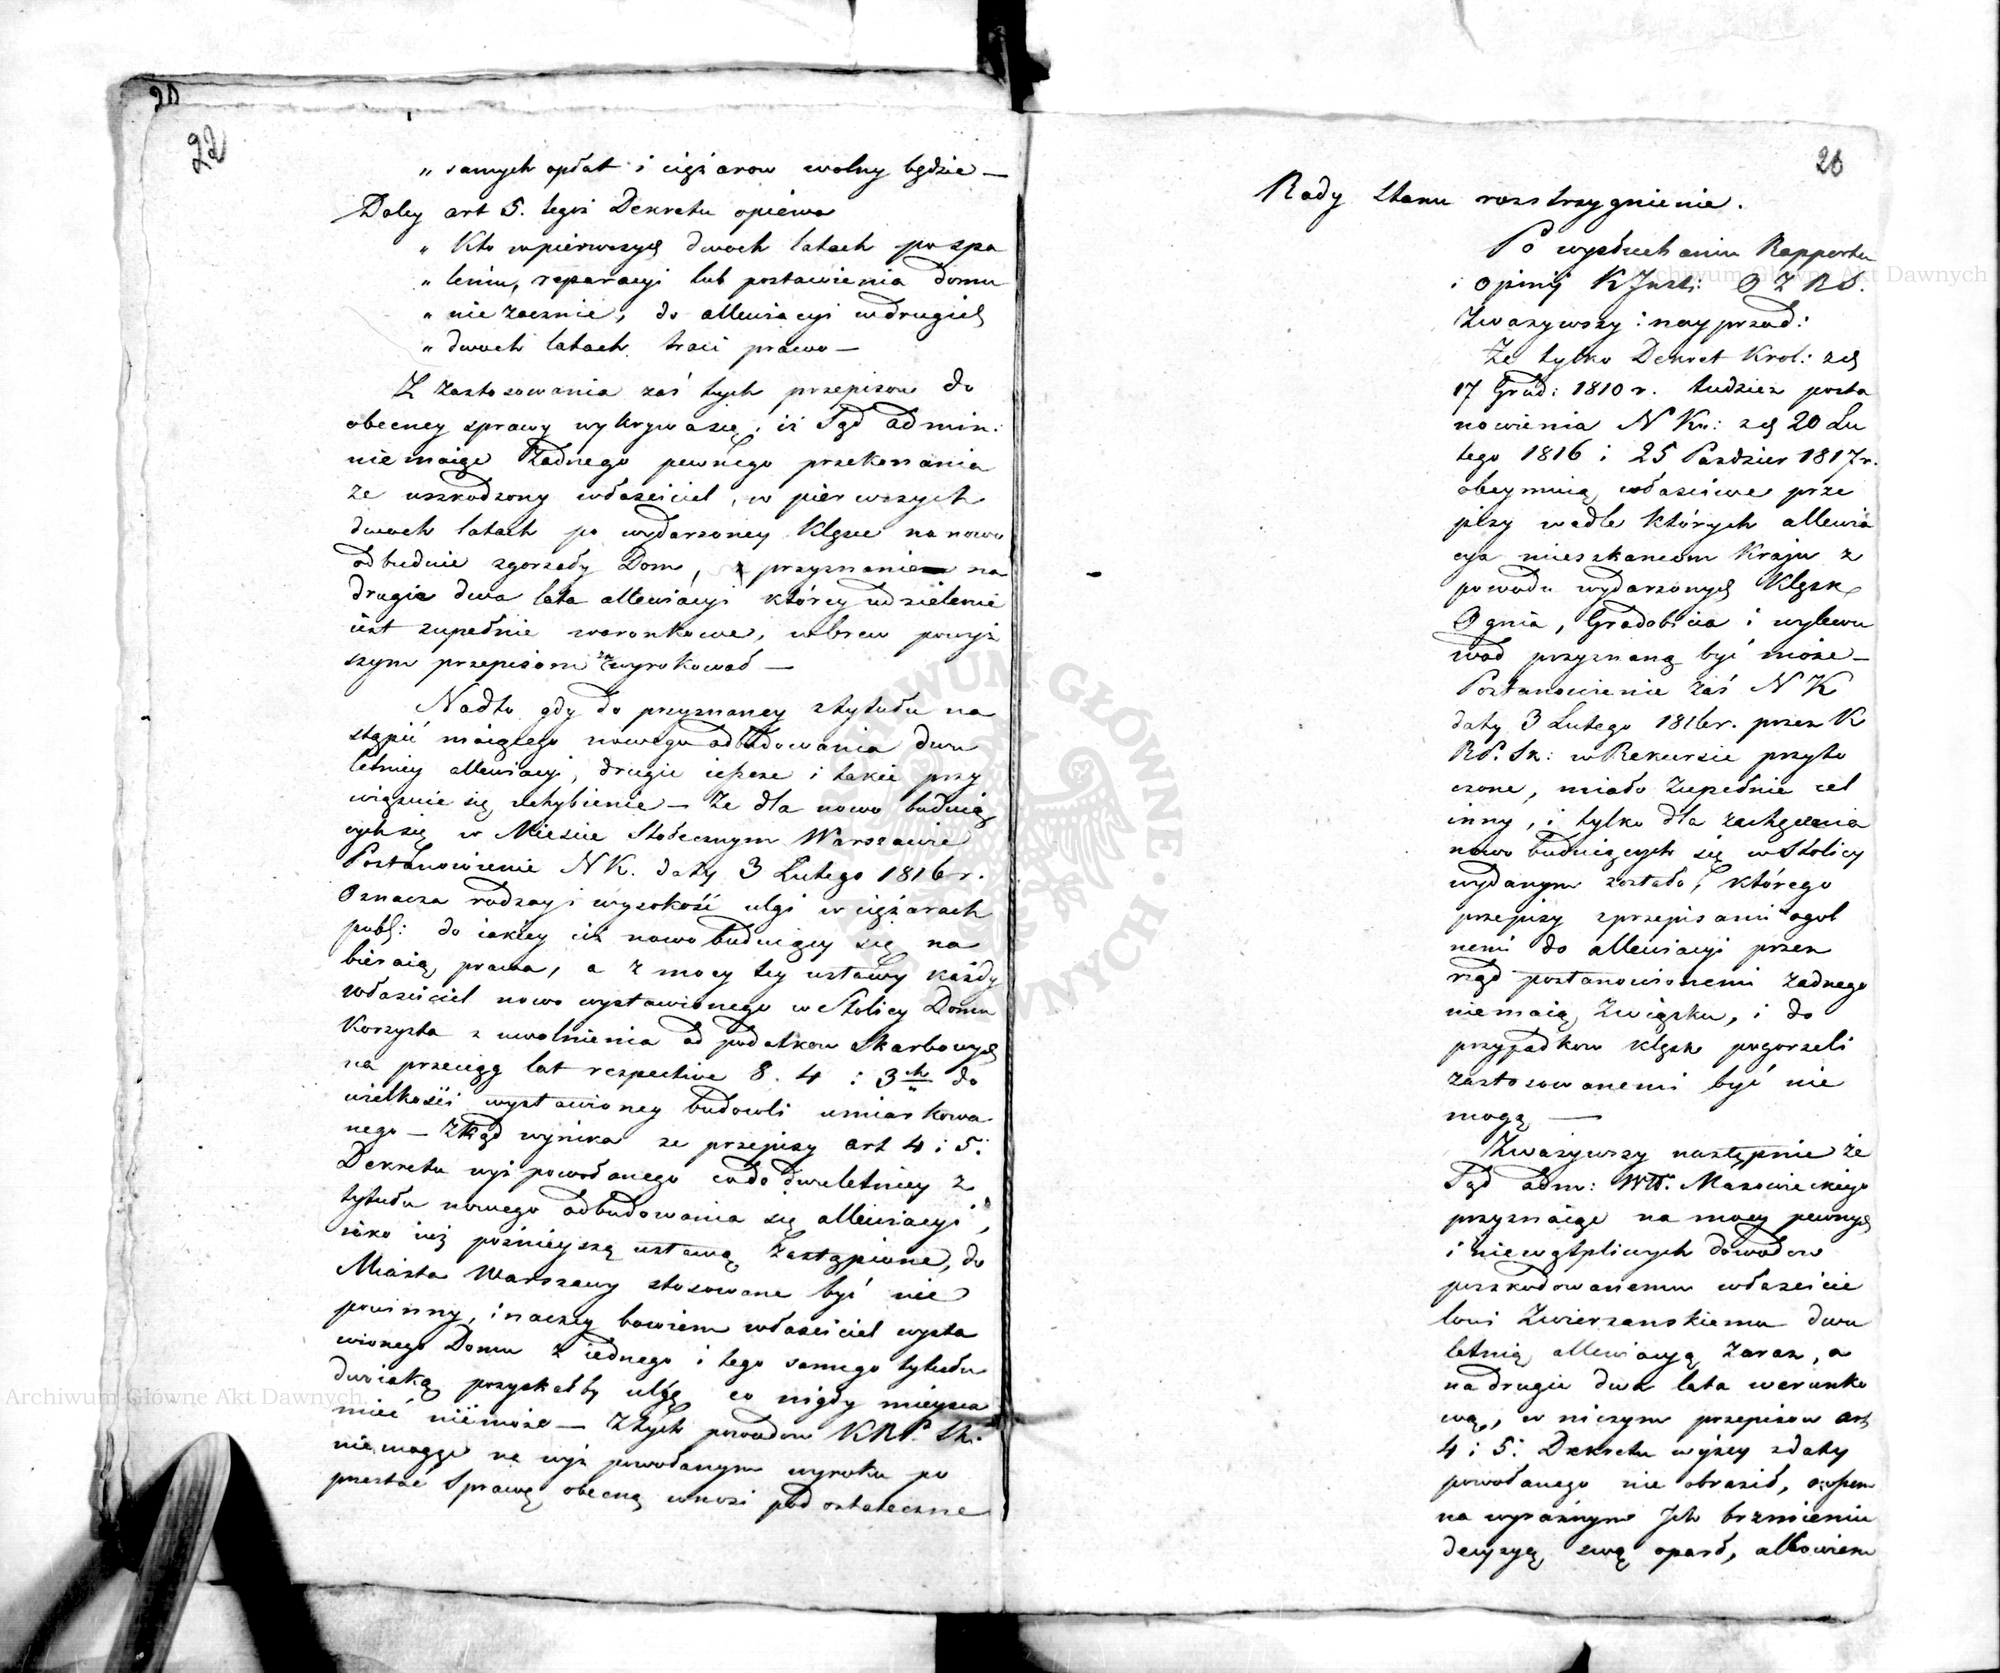 20
22
„ samych opłat i ciężarow wolny będzie —
Daley art 5. tegoż Dekretu opiewa
„ Kto w pierwszych dwoch latach po spa
„ leniu, reparacyi lub postawienia domu
„ nie zacznie, do allewiacyi w drugich
„ dwoch latach traci prawo —
Z zastosowania zaś tych przepisow do
obecney sprawy wykrywa się, iż Sąd admin:
nie maiąc żadnego pewnego przekonania
że uszkodzony właściciel, w pierwszych
dwoch latach po wydarzoney klęsce na nowo
odbuduie zgorzały Dom, z przyznaniem na
drugie dwa lata allewiacyi którey udzielenie
iest zupełnie warunkowe, wbrew powyż
szym przepisom zawyrokował —
Nadto gdy do przyznaney z tytułu na
stąpić maiącego nowego odbudowania dwu
letniey allewiacyi, drugie ieszcze i takie przy
wiązuie się uchybienie — Że dla nowo buduią
cych się w Mieście Stołecznym Warszawie
Postanowienie N K. daty 3 Lutego 1816 r.
Oznacza rodzay i wysokość ulgi w ciężarach
publ: do iakiey iuż nowo buduiący się na
bieraią prawa, a z mocy tey ustawy każdy
właściciel nowo wystawionego w Stolicy Domu
Korzysta z uwolnienia od podatkow Skarbowych
na przeciąg lat respective 8. 4 i 3ch do
wielkości wystawioney budowli umiarkowa
nego — Ztąd wynika że przepisy art 4 i 5.
Dekretu wyż powołanego co do dwuletniey z
tytułu nowego odbudowania się allewiacyi,
iako iuż poźnieyszą ustawą zastąpione, do
Miasta Warszawy stosowane być nie
powinny, inaczey bowiem właściciel wysta
wionego Domu z iednego i tego samego tytułu
dwoiaką pozyskałby ulgę co nigdy mieysca
mieć nie może — Z tych powodow KRP. Sk:
nie mogąc na wyż powołanym wyroku po
przestać Sprawę obecną wnosi pod ostateczne
20
Rady Stanu rozstrzygnienie.
Po wysłuchaniu Rapportu
i Opinij K Just: O Z R S.
Zważywszy: nayprzod:
Że tylko Dekret Krol: z d
17 Grud: 1810 r. tudzież posta
nowienia N Kr: z d 20 Lu
tego 1816 i 25 Pazdzier 1817 r.
obeymuią właściwe prze
pisy wedle których allewia
cya mieszkancom Kraju z
powodu wydarzonych Klęsk
Ognia, Gradobicia i wylewu
wod przyznaną być może —
Postanowienie zaś N K
daty 3 Lutego 1816 r. przez K
RP. Sk: w Rekursie przyto
czone, miało zupełnie cel
inny, i tylko dla zachęcenia
nowo buduiących się w Stolicy
wydanym zostało, którego
przepisy z przepisami ogol
nemi do allewiacyi przez
rząd postanowionemi żadnego
nie maią Związku, i do
przypadkow klęsk pogorzeli
zastosowanemi być nie
mogą —
Zważywszy następnie że
Sąd adm: Wtt. Mazowieckiego
przyznaiąc na mocy pewnych
i niewątpliwych dowodow
poszkodowanemu właścicie
lowi Zwierzanskiemu dwu
letnią allewiacyą zaraz, a
na drugie dwa lata warunko
wą, w niczym przepisow art
4 i 5. Dekretu wyżey z daty
powołanego nie obraził, owszem
na wyraźnym Ich brzmieniu
decyzyą swą oparł, albowiem
Archiwum Główne Akt Dawnych
Archiwum Główne Akt Dawnych
ARCHIWUM GŁÓWNE AKT DAWNYCH